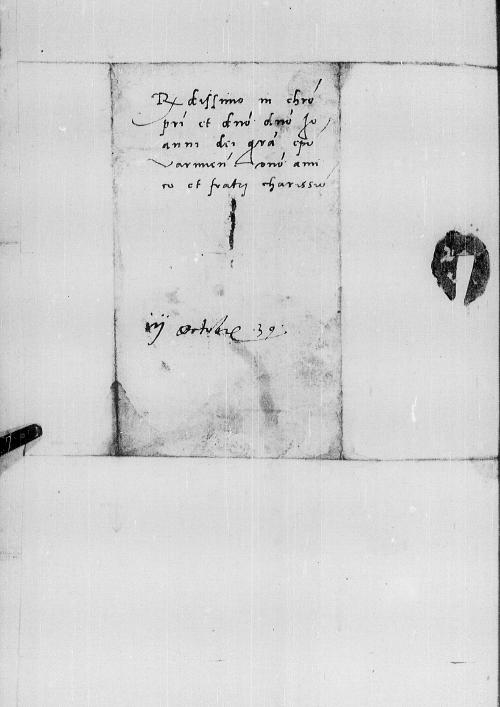 Rx dissimo in chro
pri et dno dno Jo
anni dei gra epo
varmien ono ami
co et fratri charissio
iij Octobr 39